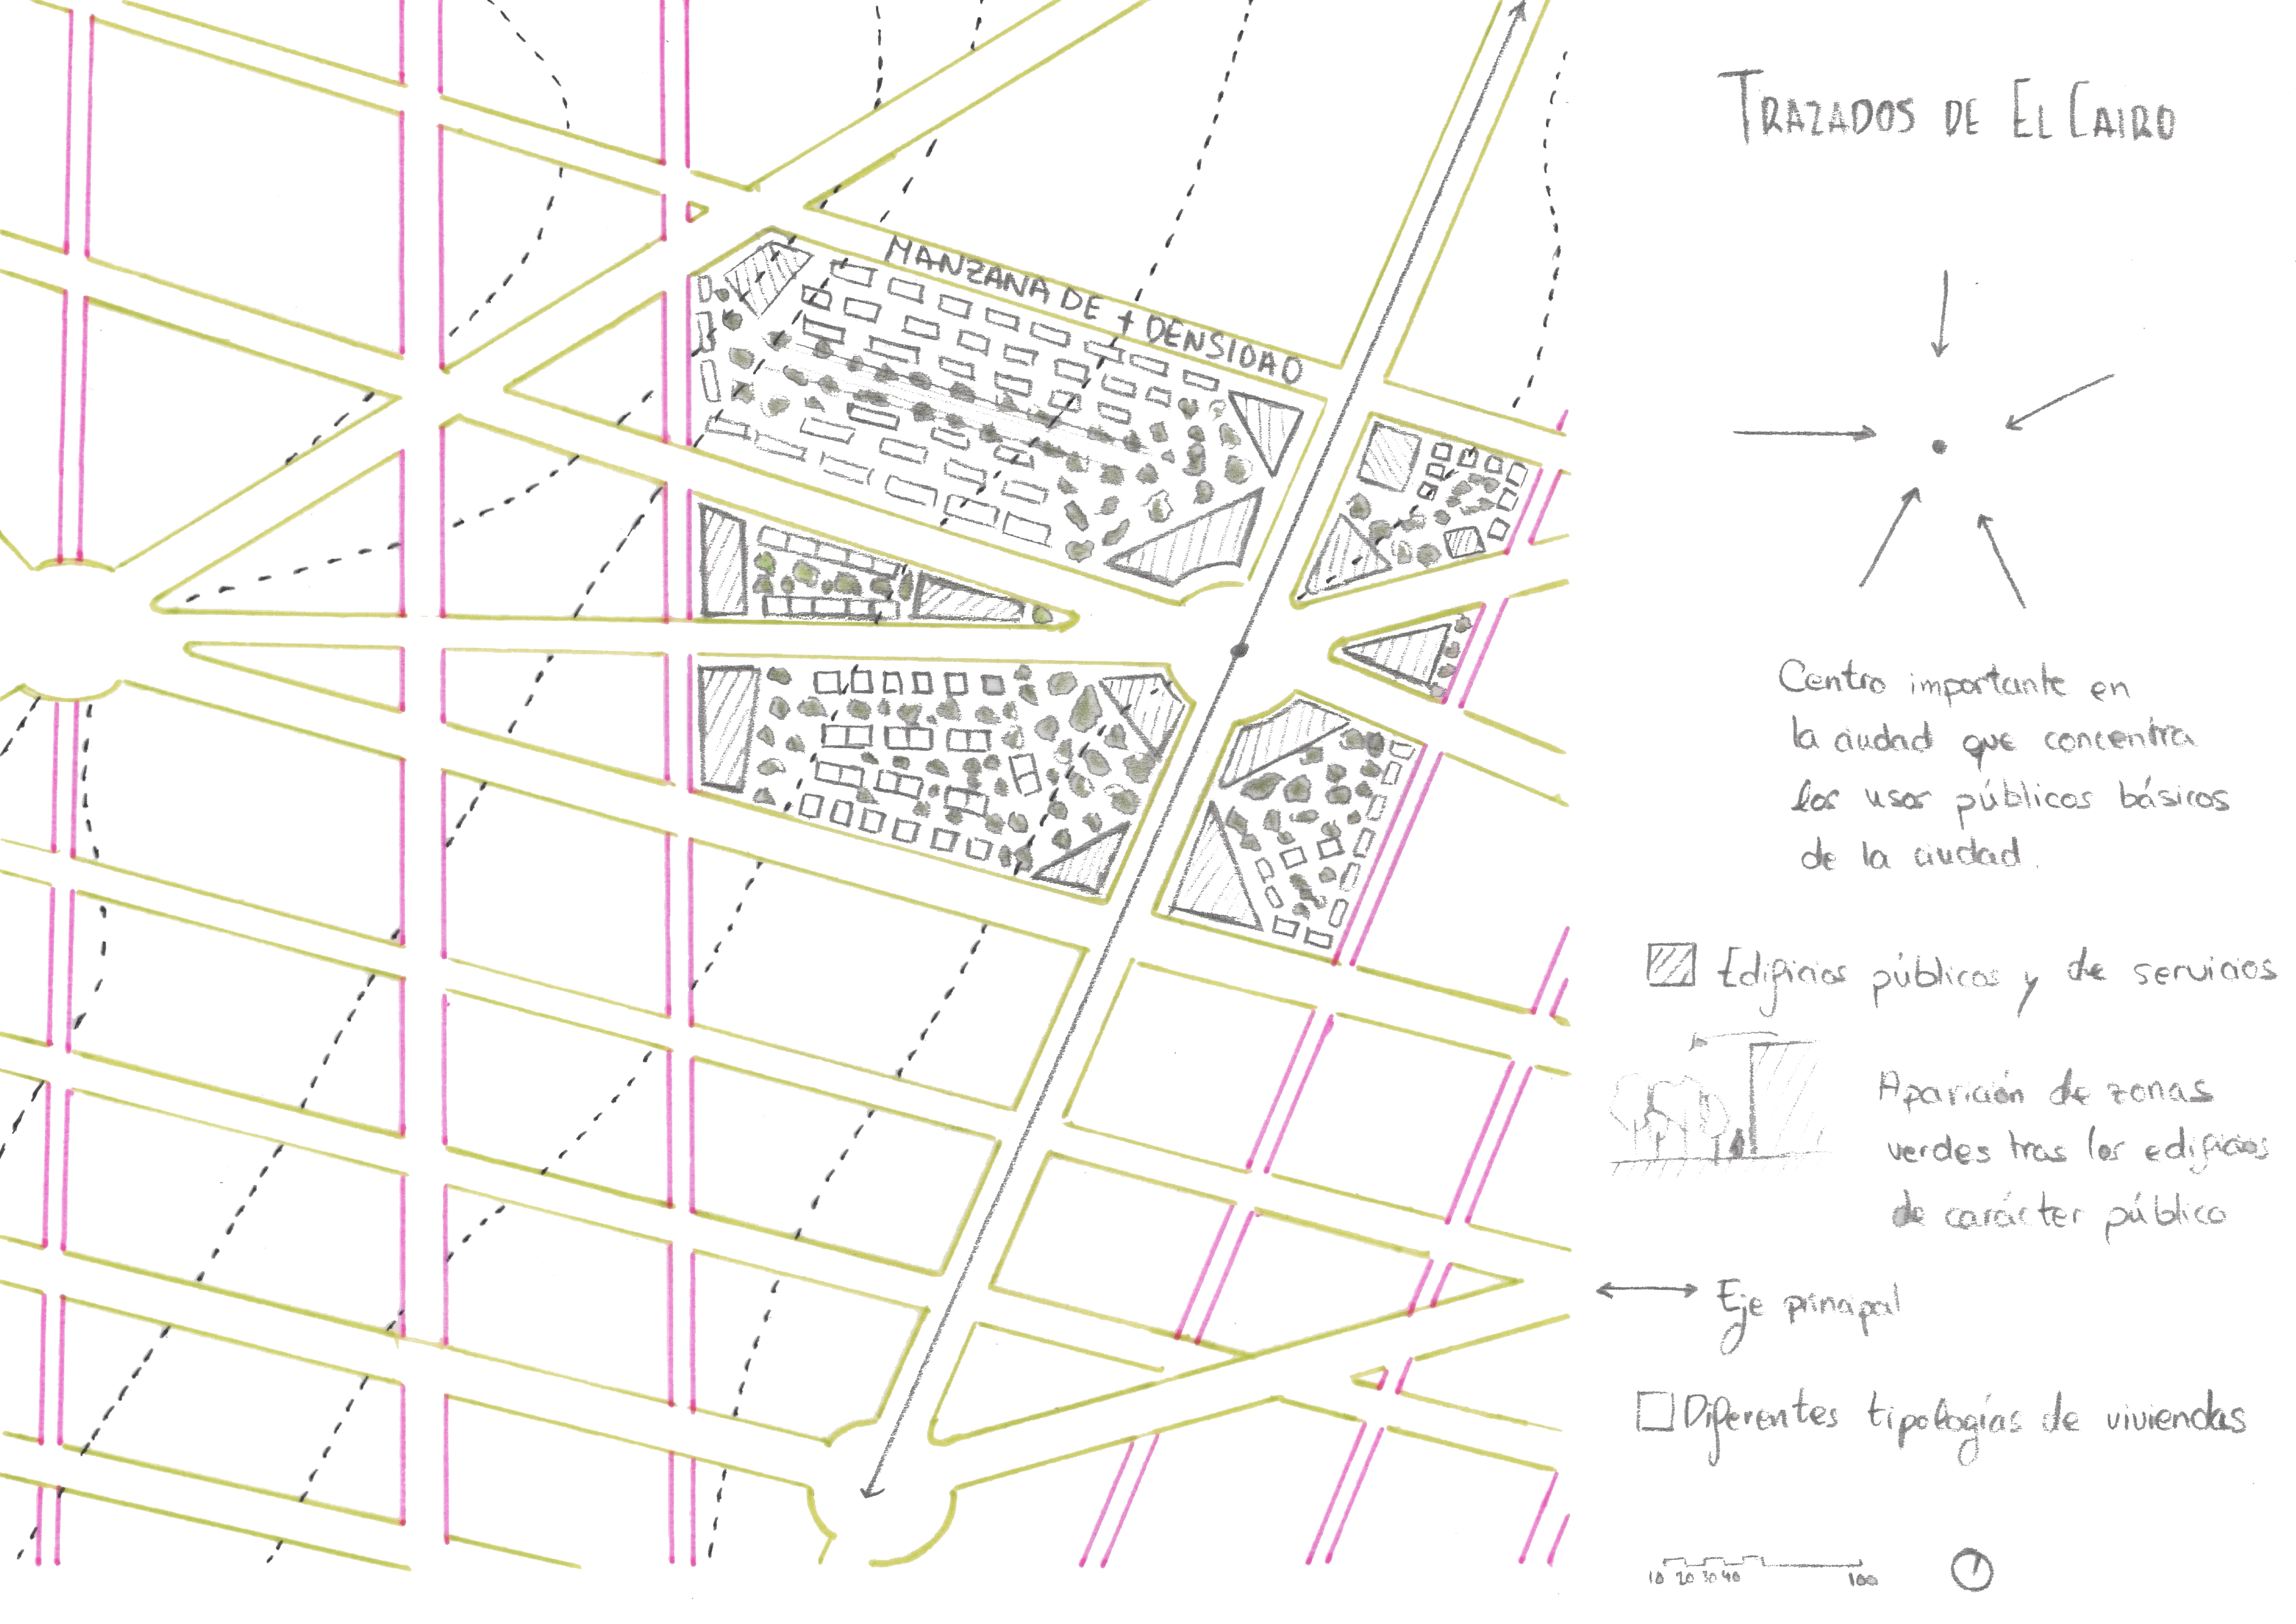 TRAZADOS DE EL CAIRO
MANZANA DE + DENSIDAD
Centro importante en
la ciudad que concentra
los usos públicos básicos
de la ciudad.
Edificios públicos y de servicios
Aparición de zonas
verdes tras los edificios
de carácter público
Eje principal
Diferentes tipologías de viviendas
10 20 30 40 100